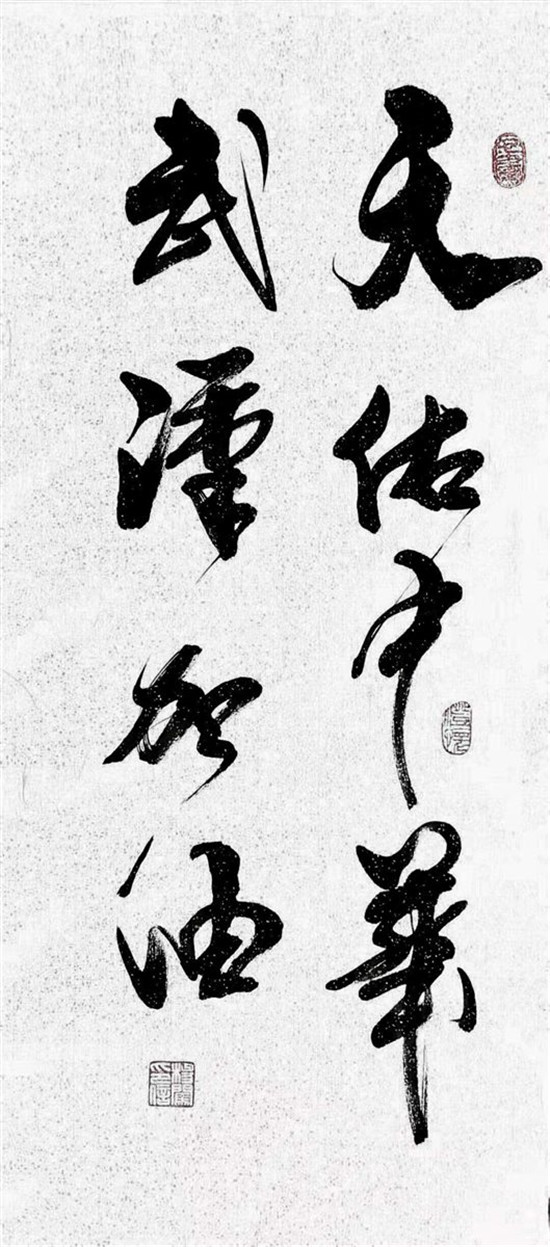 天佑中華
武漢加油